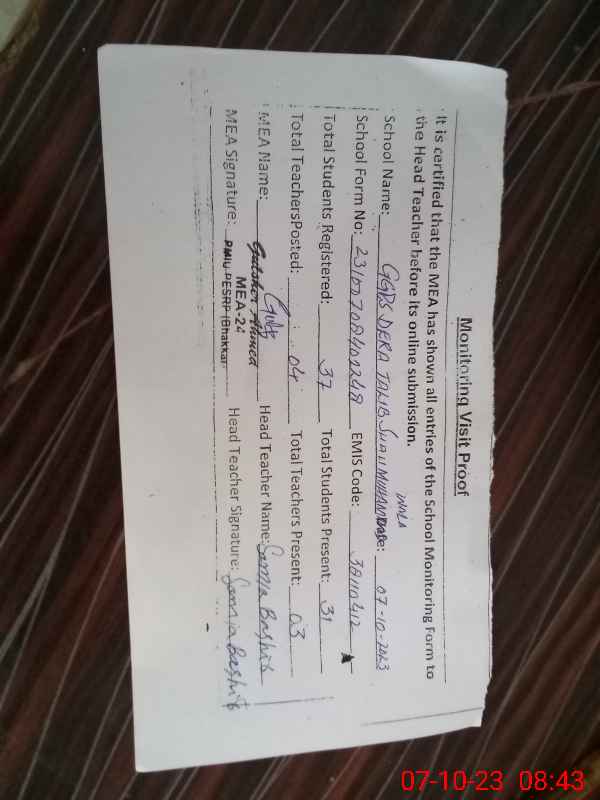 Monitoring Visit Proof
It is certified that the MEA has shown all entries of the School Monitoring Form to
the Head Teacher before its online submission.
School Name: GGPS DERA TALIB SHAH MUHAMMAD WALA Date: 07-10-2023
School Form No: EMIS Code: 38110412
Total Students Registered: 37 Total Students Present: 31
Total TeachersPosted: 04 Total Teachers Present: 03
MEA Name: Gulsher Ahmed Head Teacher Name: Samia Bashir
MEA-24
MEA Signature: PMIU-PESRP (Bhakkar) Head Teacher Signature: Samia Bashir
07-10-23 08:43